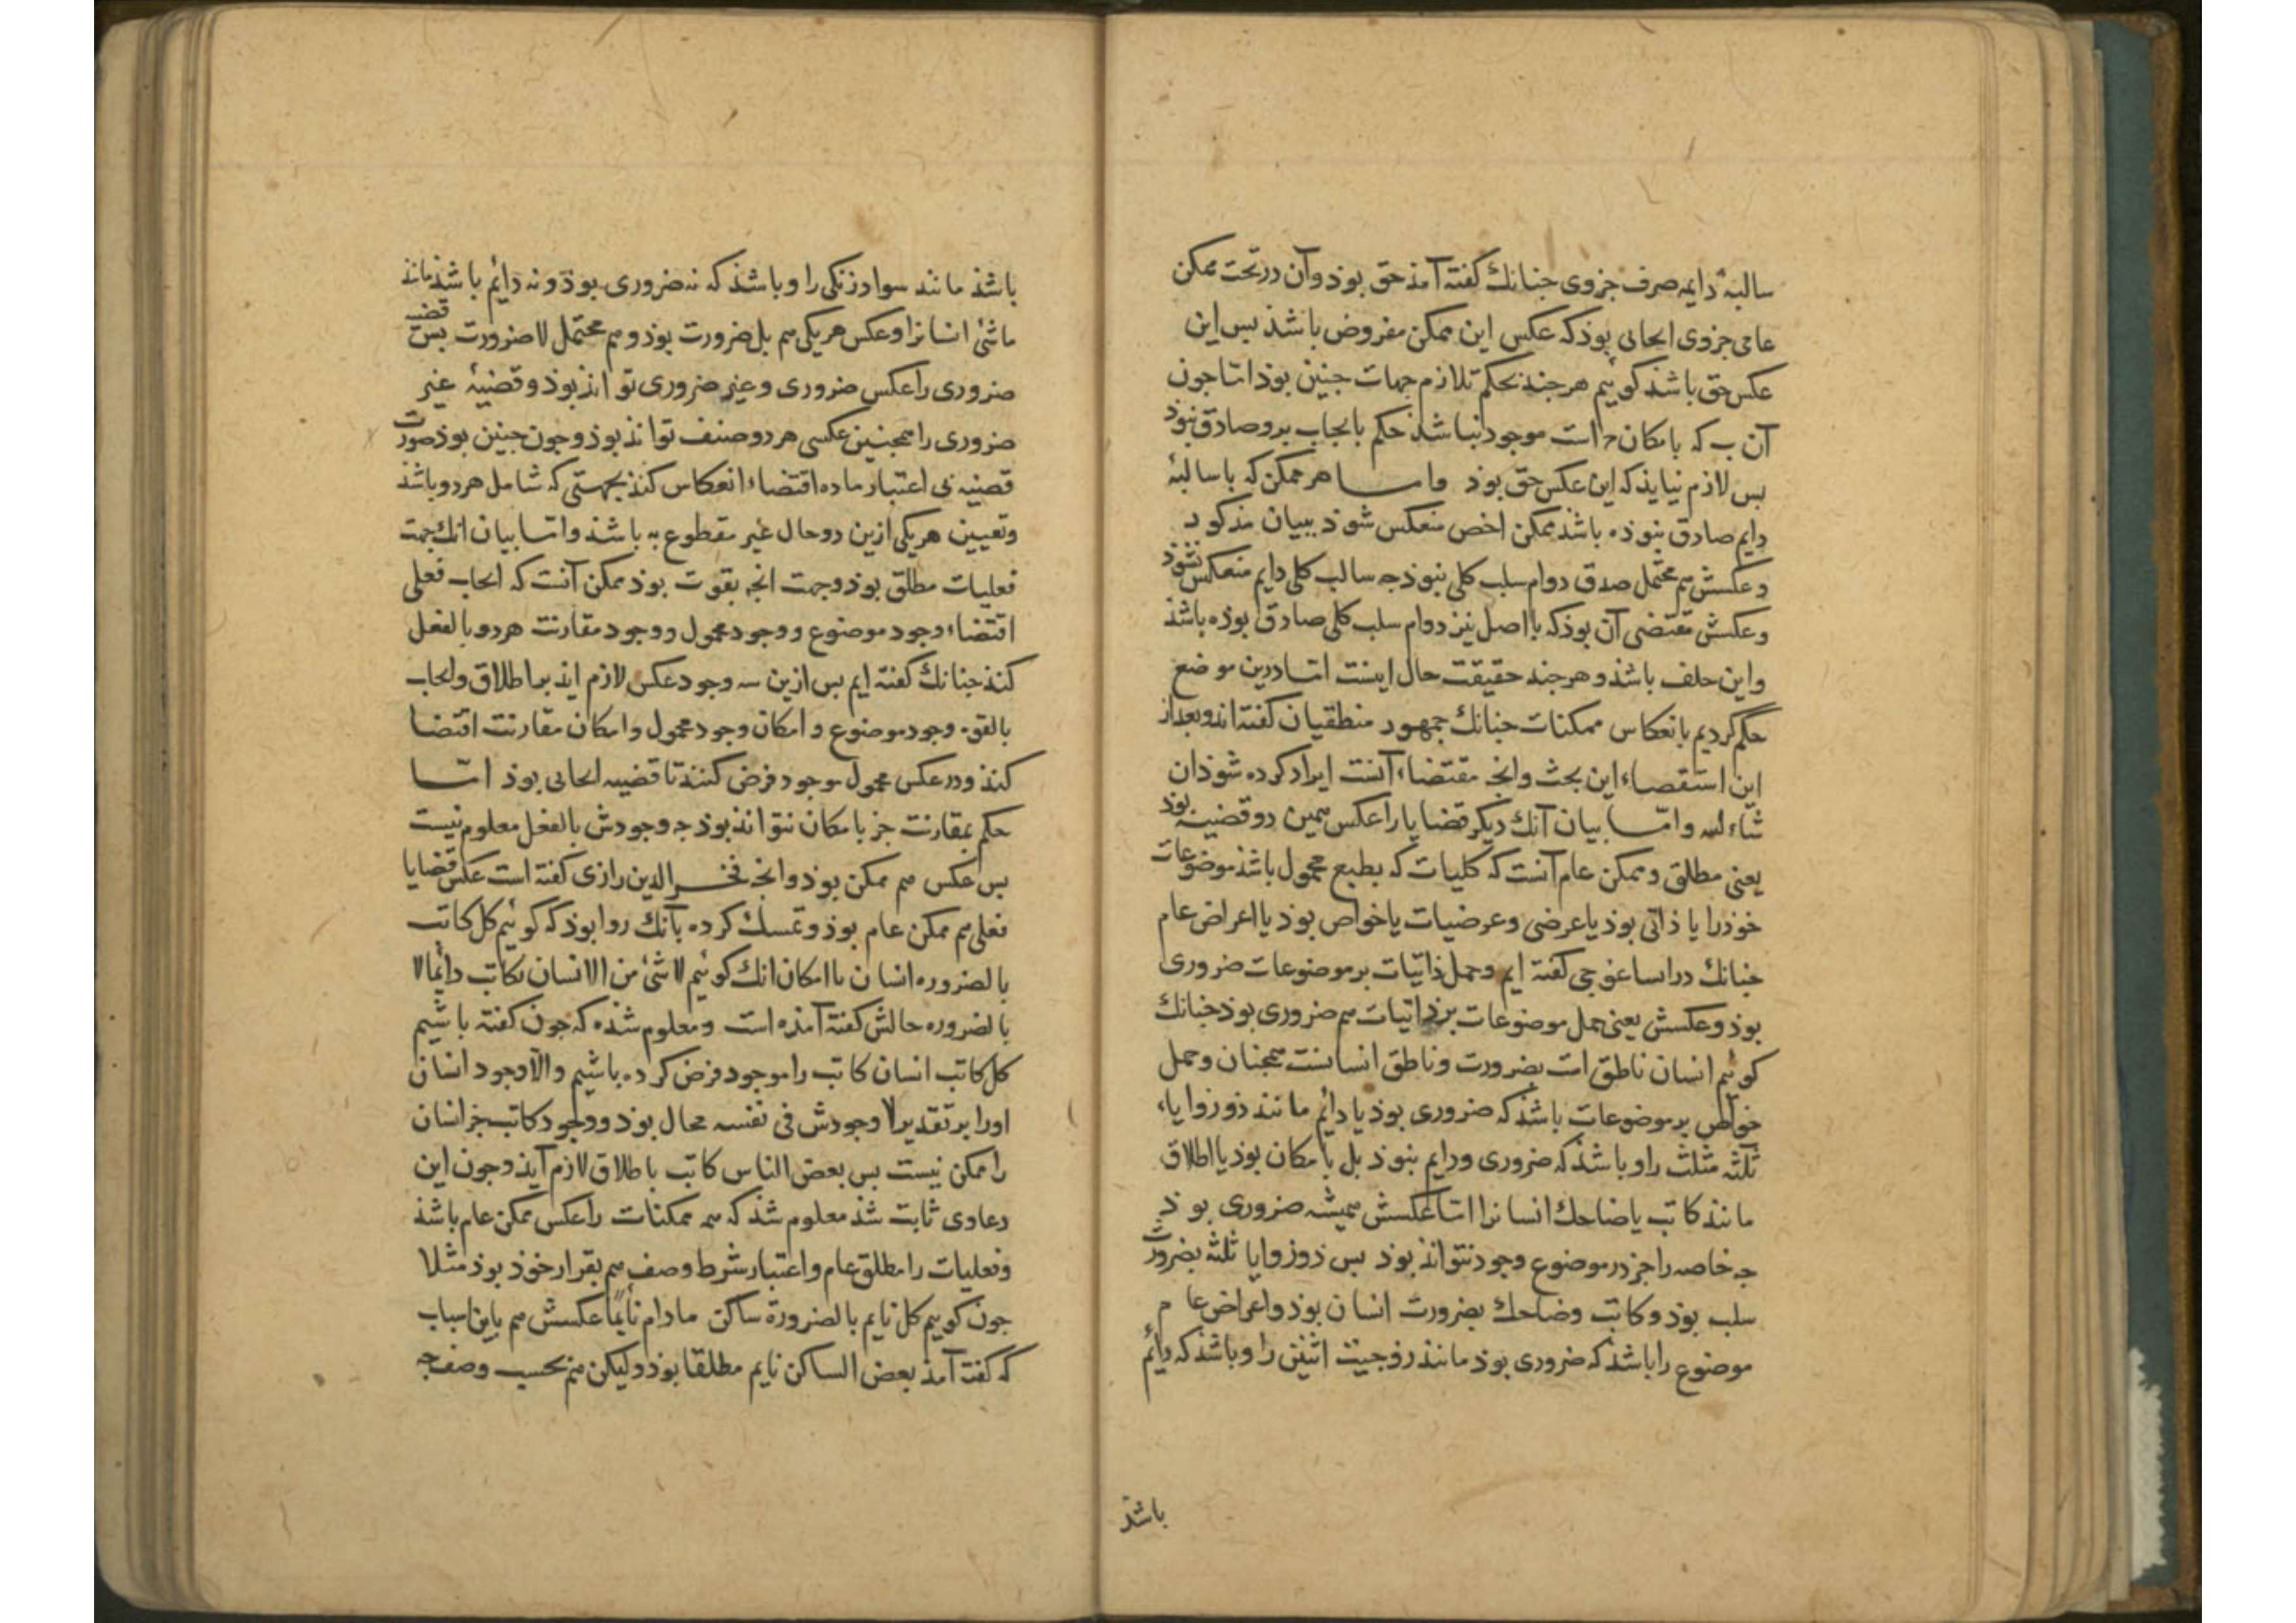 سالبهٔ دایمه صرف جزوی جنانك كفته آمذ حق بوذ وآن در تحت ممكن
عامی جزوی ایحابی بوذ كه عكس این ممكن مفروض باشذ بس این
عكس حق باشذ كوئیم هر جند بحكم تلازم جهات جنین بوذ اما جون
آن ب كه بامكان ج است موجود نباشذ حكم بایجاب برو صادق نبوذ
بس لازم نیایذ كه این عكس حق بوذ واما هر ممكن كه با سالبهٔ
دایم صادق نبوذه باشذ ممكن اخص منعكس شوذ ببیان مذكور
وعكسش هم محتمل صدق دوام سلب كلی نبوذ جه سالب كلی دایم منعكس نشوذ
وعكسش مقتضی آن بوذ كه با اصل نیز دوام سلب كلی صادق بوذه باشذ
واین خلف باشذ و هر جند حقیقت حال اینست اما درین موضع
حكم كردیم بانعكاس ممكنات جنانك جمهور منطقیان كفته اند وبعد از
این استقصاء این بحث وانجه مقتضاء آنست ایراد كرده شوذ ان
شاء الله واما بیان آنك دیكر قضایا را عكس همین دو قضیه بوذ
یعنی مطلق و ممكن عام آنست كه كلیات كه بطبع محمول باشذ موضوعات
خوذ را یا ذاتی بوذ یا عرضی وعرضیات یا خواص بوذ یا اعراض عام
جنانك در ایساغوجی كفته ایم وحمل ذاتیات بر موضوعات ضروری
بوذ وعكسش یعنی حمل موضوعات بر ذاتیات هم ضروری بوذ جنانك
كوئیم انسان ناطق است بضرورت وناطق انسانست همجنان وحمل
خواص بر موضوعات باشذ كه ضروری بوذ یا دائم مانند ذو زوایاء
ثلثه مثلث را وباشذ كه ضروری ودایم نبوذ بل بامكان بوذ یا اطلاق
مانند كاتب یا ضاحك انسانرا اما عكسش همیشه ضروری بوذ
جه خاصه را جز در موضوع وجود نتواند بوذ بس ذو زوایا ثلثه بضرورت
مثلث بوذ وكاتب وضاحك بضرورت انسان بوذ واعراض عام
موضوع را باشذ كه ضروری بوذ مانند زوجیت اثنین را وباشذ كه دائم
باشذ
باشذ مانند سواد زنكی را وباشذ كه نه ضروری بوذ ونه دائم باشذ مانند
ماشئ انسانرا وعكس هر یكی هم بل ضرورت بوذ وهم محتمل لاضرورت بس قضیه
ضروری را عكس ضروری وغیر ضروری تواند بوذ وقضیهٔ غیر
ضروری را همجنین عكسی هر دو صنف تواند بوذ وجون جنین بوذ صورت
قضیه بی اعتبار ماده اقتضاء انعكاس كنذ بجهتی كه شامل هر دو باشذ
وتعیین هر یكی ازین دو حال غیر مقطوع به باشذ واما بیان انك جهت
فعلیات مطلق بوذ وجهت انجه بقوت بوذ ممكن آنست كه ایجاب فعلی
اقتضاء وجود موضوع ووجود محمول ووجود مقارنت هر دو بالفعل
كنذ جنانك كفته ایم بس ازین سه وجود عكس لازم ایذ بر اطلاق وایجاب
بالقوه وجود موضوع وامكان وجود محمول وامكان مقارنت اقتضا
كنذ ودر عكس محمول موجود فرض كنند تا قضیه ایجابی بوذ اما
حكم بمقارنت جز بامكان نتواند بوذ جه وجودش بالفعل معلوم نیست
بس عكس هم ممكن بوذ وانجه فخر الدین رازی كفته است عكس قضایا
فعلی هم ممكن عام بوذ وتمسك كرده بآنك روا بوذ كه كوئیم كل كاتب
بالضروره انسان با امكان انك كوئیم لا شئ من الانسان بكاتب دائما لا
بالضروره حالش كفته آمذه است ومعلوم شذه كه جون كفته باشیم
كل كاتب انسان كاتب را موجود فرض كرده باشیم والا وجود انسان
اورا بر تقدیر لا وجودش فی نفسه محال بوذ ووجود كاتب جز انسان
را ممكن نیست بس بعض الناس كاتب باطلاق لازم آیذ وجون این
دعاوی ثابت شذ معلوم شذ كه همه ممكنات را عكس ممكن عام باشذ
وفعلیات را مطلق عام واعتبار شرط وصف هم بقرار خوذ بوذ مثلا
جون كوییم كل نایم بالضرورة ساكن مادام نایما عكسش هم باین اسباب
كه كفته آمذ بعض الساكن نایم مطلقا بوذ ولیكن هم بحسب وصف جه